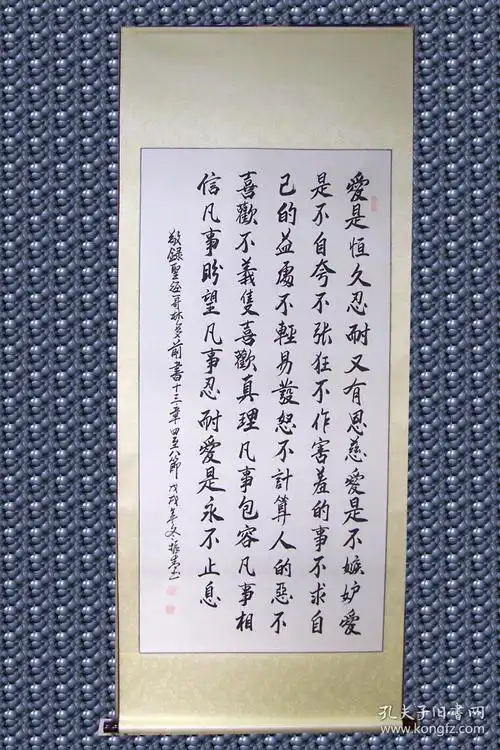 愛是恒久忍耐又有恩慈愛是不嫉妒愛
是不自夸不张狂不作害羞的事不求自
己的益處不輕易發怒不計算人的惡不
喜歡不義隻喜歡真理凡事包容凡事相
信凡事盼望凡事忍耐愛是永不止息
敬録聖經哥林多前書十三章四至八節 戊戌年冬
孔夫子旧書网
www.kongfz.com